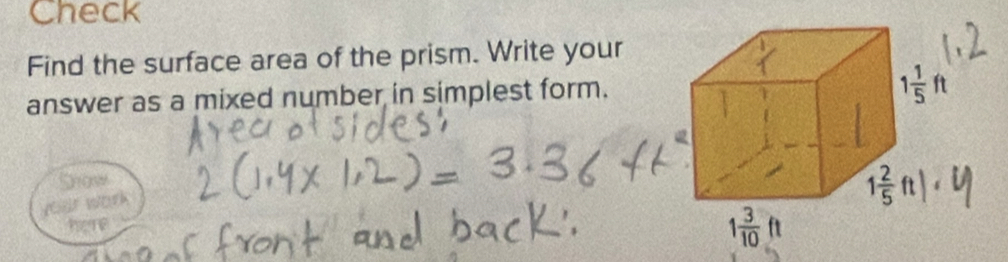 Check
Find the surface area of the prism. Write your
answer as a mixed number in simplest form.
1 1/5 ft 1.2
Area of sides:
2 (1.4 x 1.2) = 3.36 ft²
1 2/5 ft 1.4
Show
your work
here
1 3/10 ft
of front and back: